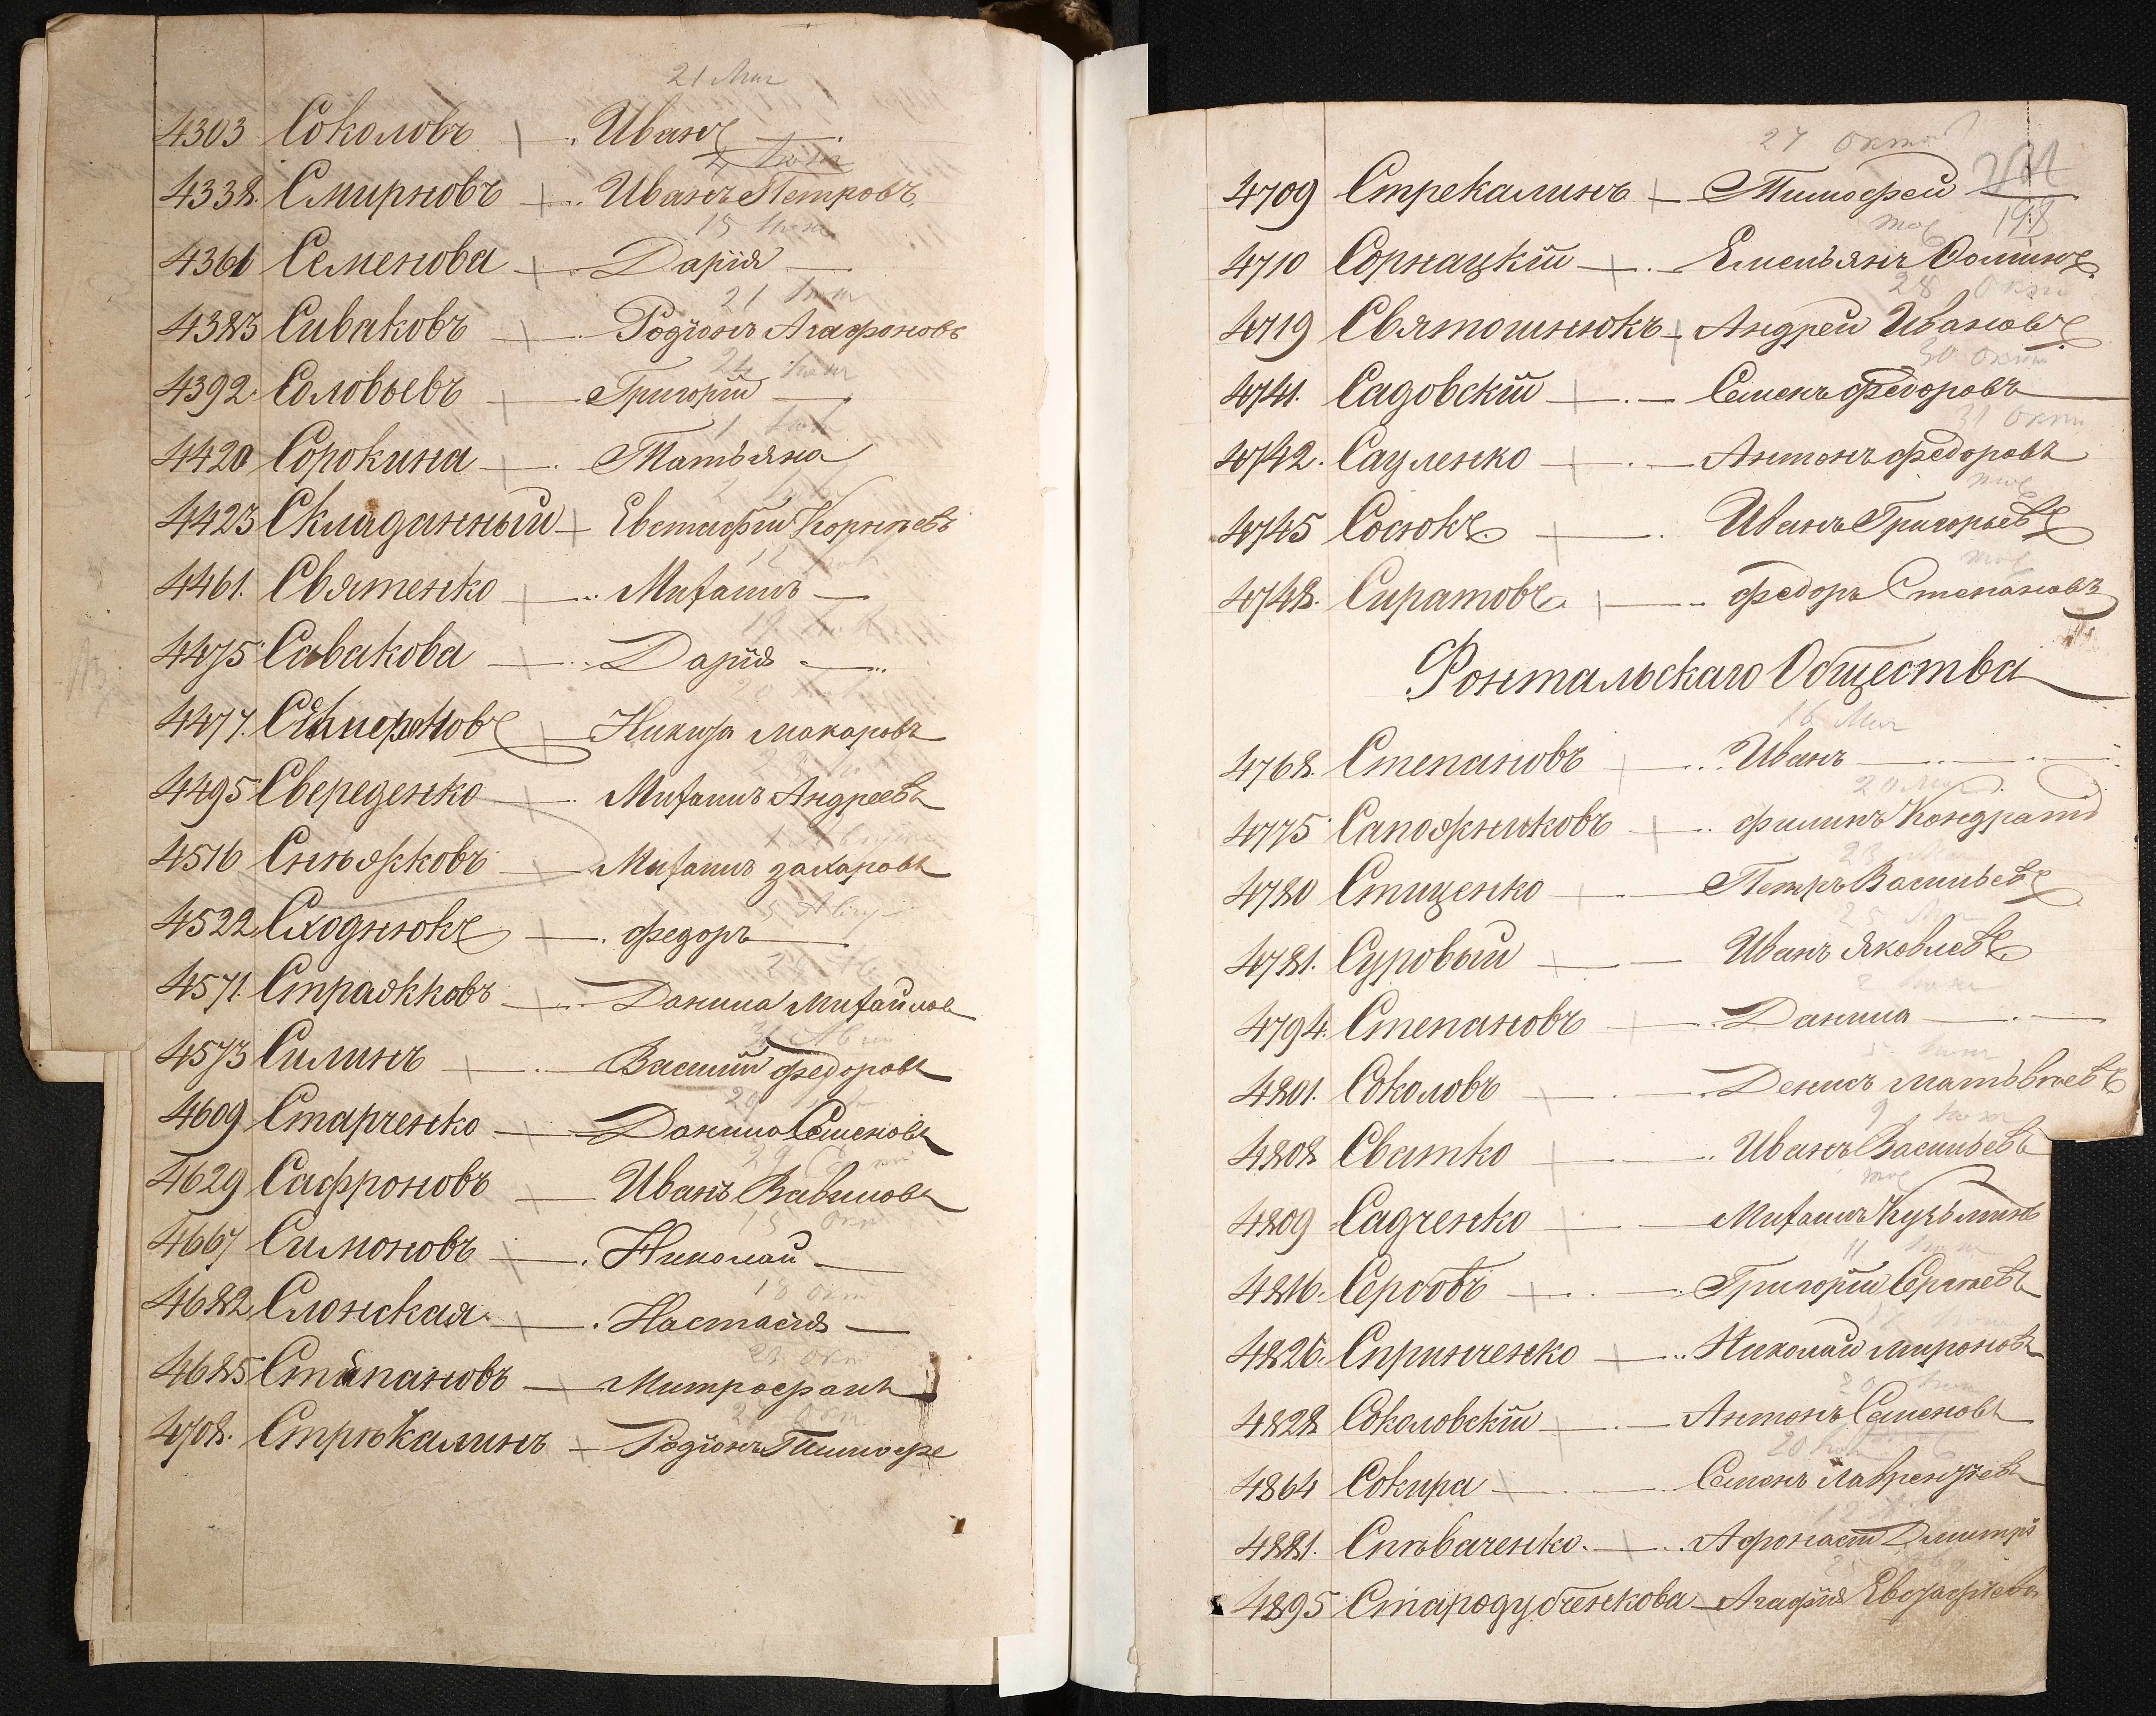 21 Мая
4303 Соколовъ — Иванъ —
4338. Смирновъ — Иванъ Петровъ
15 Июня
4361 Семенова — Дарія —
21 Июня
4383 Сиваковъ — Родіонъ Агафоновъ
24 Июня
4392. Соловьевъ — Григорій —
4420 Сорокина — Татьяна
4423 Складанный — Евстафій Корнѣевъ
4461. Святенко — Михаилъ —
4475 Савакова — Дарія —
4477. Никита Макаровъ
4495 Свереденко — Михаилъ Андреевъ
4516 Снѣжковъ — Михаилъ Захаровъ
4522 Сходнюкъ — Федоръ —
4571. Стражковъ — Данила Михайлов
4573 Силинъ — Василій Федоровъ
4609 Старченко — Данило Семеновъ
4629 Сафроновъ — Иванъ Вавиловъ
15 Окт
4667 Симоновъ — Николай —
18 окт
4682 Слонская — Настасія —
21 окт
4685 Стипановъ — Митрофанъ
27 Окт.
4708. Стрѣкалинъ — Родіонъ Тимофе
27 Окт
4709 Стрекалинъ — Тимофей
198
тоже
4710 Сорнацкій — Емельянъ Фоминъ
28 Окт
4719 Святошнюкъ — Андрей Ивановъ
30 Окт
4741. Садовскій — Семенъ Федоровъ
31 Окт
4742. Сауленко — Антонъ Федоровъ
тоже
4745 Сосюкъ — Иванъ Григорьевъ
тоже
4748. Сиратовъ — Федоръ Степановъ
Фонтальскаго Общества
16 Мая
4768. Степановъ — Иванъ —
20 Мая
4775 Сапожниковъ — Филипъ Кондрато
23 Мая
4780 Стиценко — Петръ Васильевъ
25 Мая
4781. Суровый — Иванъ Яковлевъ
2 Июня
4794. Степановъ — Данила —
5 Июня
4801. Соколовъ — Денисъ Матьвѣевъ
9 Июня
4808 Сватко — Иванъ Васильевъ
тоже
4809 Садченко — Михаилъ Кузьминъ
11 Июня
4816. Сербовъ — Григорій Сергѣевъ
4826. Спринченко — Николай Мироновъ
20 Июня
4828 Соколовскій — Антонъ Семеновъ
4864 Сокира — Семенъ Лаврентьевъ
4881. Спѣваченко. — Афонасій Дмитрі
4895 Стародубченкова — Агафія Евстафіева